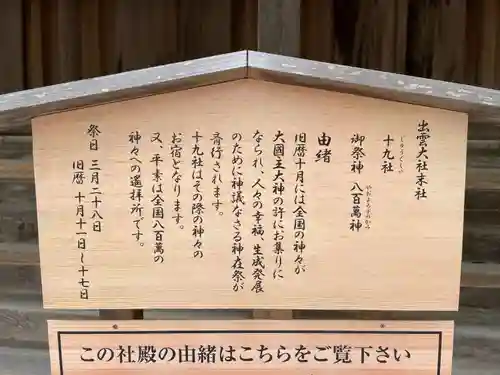 出雲大社末社
じゅうくしゃ
十九社
やおよろずのかみ
御祭神 八百萬神
由緒
旧暦十月には全国の神々が
大國主大神の許にお集りに
なられ、人々の幸福、生成発展
のために神議なさる神在祭が
斎行されます。
十九社はその際の神々の
お宿となります。
又、平素は全国八百萬の
神々への遥拝所です。
祭日 三月二十八日
旧暦 十月十一日~十七日
この社殿の由緒はこちらをご覧下さい